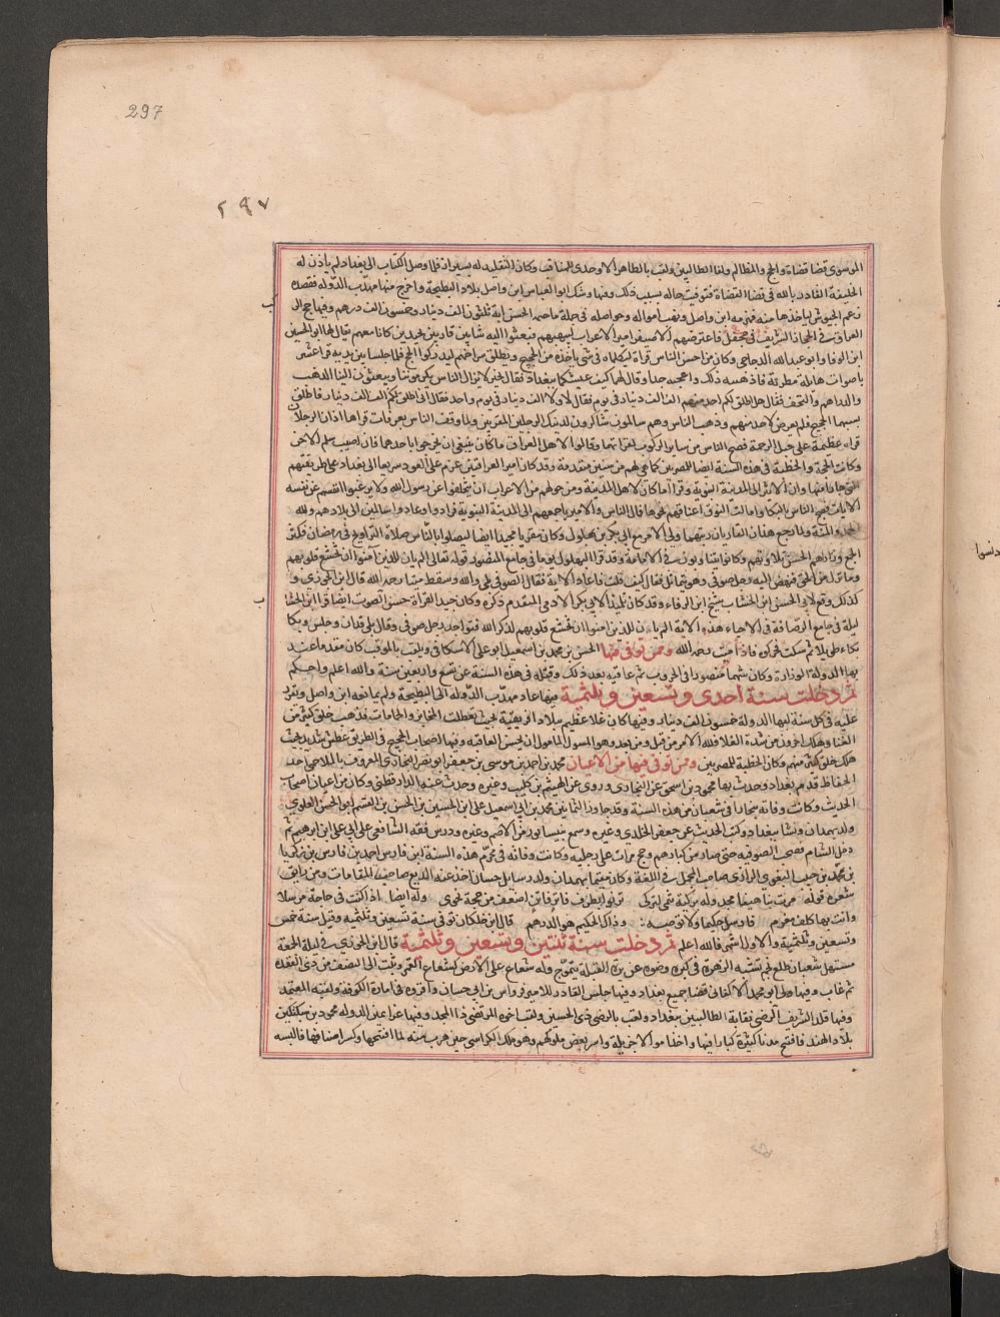 297
٢٩٧
الموسوى قضا قضاة والحج والمظالم ونقابة الطالبيين ولقب بالطاهر الاوحدى المناقب وكان التقليد له بسيراز فلما وصل الكتاب الى بغداد لم يأذن له
الخليفة القادر بالله فى قضا القضاة فتوقف حاله بسبب ذلك وفيها ملك ابو العباس ابن واصل بلاد البطيحة واخرج منها مهذب الدوله فقصده
زعيم الجيوش لياخذها منه فهزمه ابن واصل ونهب امواله وحواصله فى جملة ما حصل اليه ثلثون الف دينار وخمسون الف درهم وفيها حج الى
العراق فى الحجاز الشريف فى محفل فاعترضهم الاصيفر امير الاعراب لينهبهم فبعثوا اليه شابين قاريين مجيدين كانا معهم يقال لهما ابو الحسن
ابن الوفا وابو عبد الله الدجاجى وكان من احسن الناس قراة ليكلماه فى شئ ياخذه من الحجيج ويطلق سراحهم ليدركوا الحج فلما جلسا بين يديه قرا عشرا
باصوات هائلة مطربة فادهشه ذلك واعجبه جدا وقال لهما كيف عيشكما ببغداد فقال بخير لا يزال الناس يكرموننا ويبعثون الينا الذهب
والدراهم والتحف فقال هل اطلق لكم احد منهم الف الف دينار فى يوم فقال لا ولا الف دينار فى يوم واحد فقال انى اطلق لكم الف الف دينار فاطلق
بسببهما الحجيج فلم يعرض لاحد منهم وذهب الناس وهم سالمون شاكرون لذينك الرجلين المقريين ولما وقف الناس بعرفات قرا هذان الرجلان
قراة عظيمة على جبل الرحمة فضج الناس من ساير الركوب لقراتهما وقالوا لاهل العراق ما كان ينبغى ان تخرجوا باحدهما فان اصيب سلم الاخر
وكانت الحجة والخطبة فى هذه السنة ايضا للمصريين كما هى لهم من سنين متقدمة وقد كان امير العراقيين عزم على العود سريعا الى بغداد على طريقهم
التى جاوا منها وان لا يسير الى المدينة النبوية وقراما كان لاهل المدينة ومن حولهم من الاعراب ان يتخلفوا عن رسول الله ولا يرغبوا بانفسهم عن نفسه
الايات فضج الناس بالبكا وامالت النوق اعناقهم نحوها فمال الناس والامير باجمعهم الى المدينة النبوية فزاروا وعادوا سالمين الى بلادهم ولله
الحمد والمنة ولما رجع هذان القاريان رتبهما ولى الامر مع ابى بكر بن بهلول وكان مقريا مجيدا ايضا ليصلوا بالناس صلاة التراويح فى رمضان فكثر
الجمع وراءهم لحسن تلاوتهم وكانوا يتناوبون فى الامامة وقد قرا ابن البهلول يوما فى جامع المنصور قوله تعالى الم يان للذين امنوا ان تخشع قلوبهم
وما نزل من الحق فنهض اليه رجل صوفى وهو يتمايل فقال كيف قلت فاعاد الاية فقال الصوفى بلى والله وسقط ميتا رحمه الله قال ابن الجوزى و
كذلك وقع لابو الحسن ابن الخشاب شيخ ابن الرفاء وقد كان تلميذا لابى بكر الادمى المتقدم ذكره وكان جيد القراة حسن الصوت ايضا قرا ابن الخشا ب
ليلة فى جامع الرصافة فى الاحياء هذه الاية الم يان للذين امنوا ان تخشع قلوبهم لذكر الله فتواجد رجل صوفى وقال بلى قد ان وجلس وبكا
بكاء طويلا ثم سكت فحركوه فاذا ميت رحمه الله وممن توفى فيها الحسن بن محمد بن اسمعيل ابو على الاسكافى ويلقب بالموفق كان مقدما عند
بهاالدولة الوزارة وكان شهما منصورا فى الحروب ثم عاقبه بعد ذلك وقتله فى هذه السنة عن تسع واربعين سنة والله اعلم واحكم
ثم دخلت سنة احدى وتسعين وثلثمية فيها عاد مهذب الدوله الى البطيحة ولم يمانعه ابن واصل وتقرر
عليه فى كل سنة لبهاالدوله خمسون الف دينار وفيها كان غلاء عظيم ببلاد افريقية بحيث تعطلت المخابز والحمامات فذهب خلق كثير من
الفنا وهلك اخرون من شدة الغلا فلله الامر من قبل ومن بعد وهو المسول المامول ان يحسن العاقبه وفيها اصاب الحجيج فى الطريق عطش شديد بحيث
هلك خلق كثير منهم وكان الخطبة للمصريين وممن توفى فيها من الاعيان محمد بن احمد بن موسى بن جعفر ابو نصر البخارى المعروف بالملاحمى احد
الحفاظ قدم بغداد وحدث بها محمود بن اسحق عن البخارى وروى عن الهيثم بن كليب وغيره وحدث عنه الدارقطنى وكان من اعيان اصحاب
الحديث وكانت وفاته ببخارا فى شعبان من هذه السنة وقد جاوز الثمانين محمد بن ابى اسمعيل على ابن الحسين بن الحسن بن القسم ابو الحسن العلوى
ولد بهمدان ونشا ببغداد وكتب الحديث عن جعفر الخلدى وغيره وسمع بنيسابور من الاصم وغيره ودرس فقه الشافعى على ابى على ابن ابى هريرة ثم
دخل الشام فصحب الصوفيه حتى صار من كبارهم وحج مرات على رجليه وكانت وفاته فى محرم هذه السنة ابن فارس احمد بن فارس بن زكريا
بن محمد بن حبيب اللغوى الرازى صاحب المجمل فى اللغة وكان مقيما بهمدان وله رسايل حسان اخذ عنه البديع صاحب المقامات ومن رايق
شعره قوله مرت بنا هيفا مجدوله تركية تنمى لتركى ترنو بطرف فاتر فاتن اضعف من حجة نحوى وله ايضا اذا كنت فى حاجة مرسلا
وانت بها كلف مغرم فارسل حكيما ولا توصه وذاك الحكيم هو الدرهم قال ابن خلكان توفى سنة تسعين وثلثمية وقيل سنة خمس
وتسعين وثلثمية والاول اشهر فالله اعلم ثم دخلت سنة ثنتين وتسعين وثلثمية قال ابن الجوزى فى ليلة الجمعة
مستهل شعبان طلع نجم يشبه الزهرة فى كبره وضوه عن يسرة القبلة يتموج وله شعاع على الارض كشعاع القمر وثبت الى النصف من ذى القعده
ثم غاب وفيها ولى ابو محمد الاكفانى قضا جميع بغداد وفيها جلس القادر للامير قرواش بن ابى حسان واقره فى امارة الكوفة ولقبه المعتمد
وفيها قلد الشريف الرضى نقابة الطالبيين ببغداد ولقب بالرضى ذى الحسبين ولقب اخوه المرتضى ذا المجدين وفيها غزا يمين الدوله محمود بن سبكتكين
بلاد الهند فافتتح مدنا كثيرة كبارا فيها واخذ اموالا جزيلة واسر بعض ملوكهم وهو ملك الكراسى حين هرب منه لما افتتحها وكسر اصنامها فالبسه